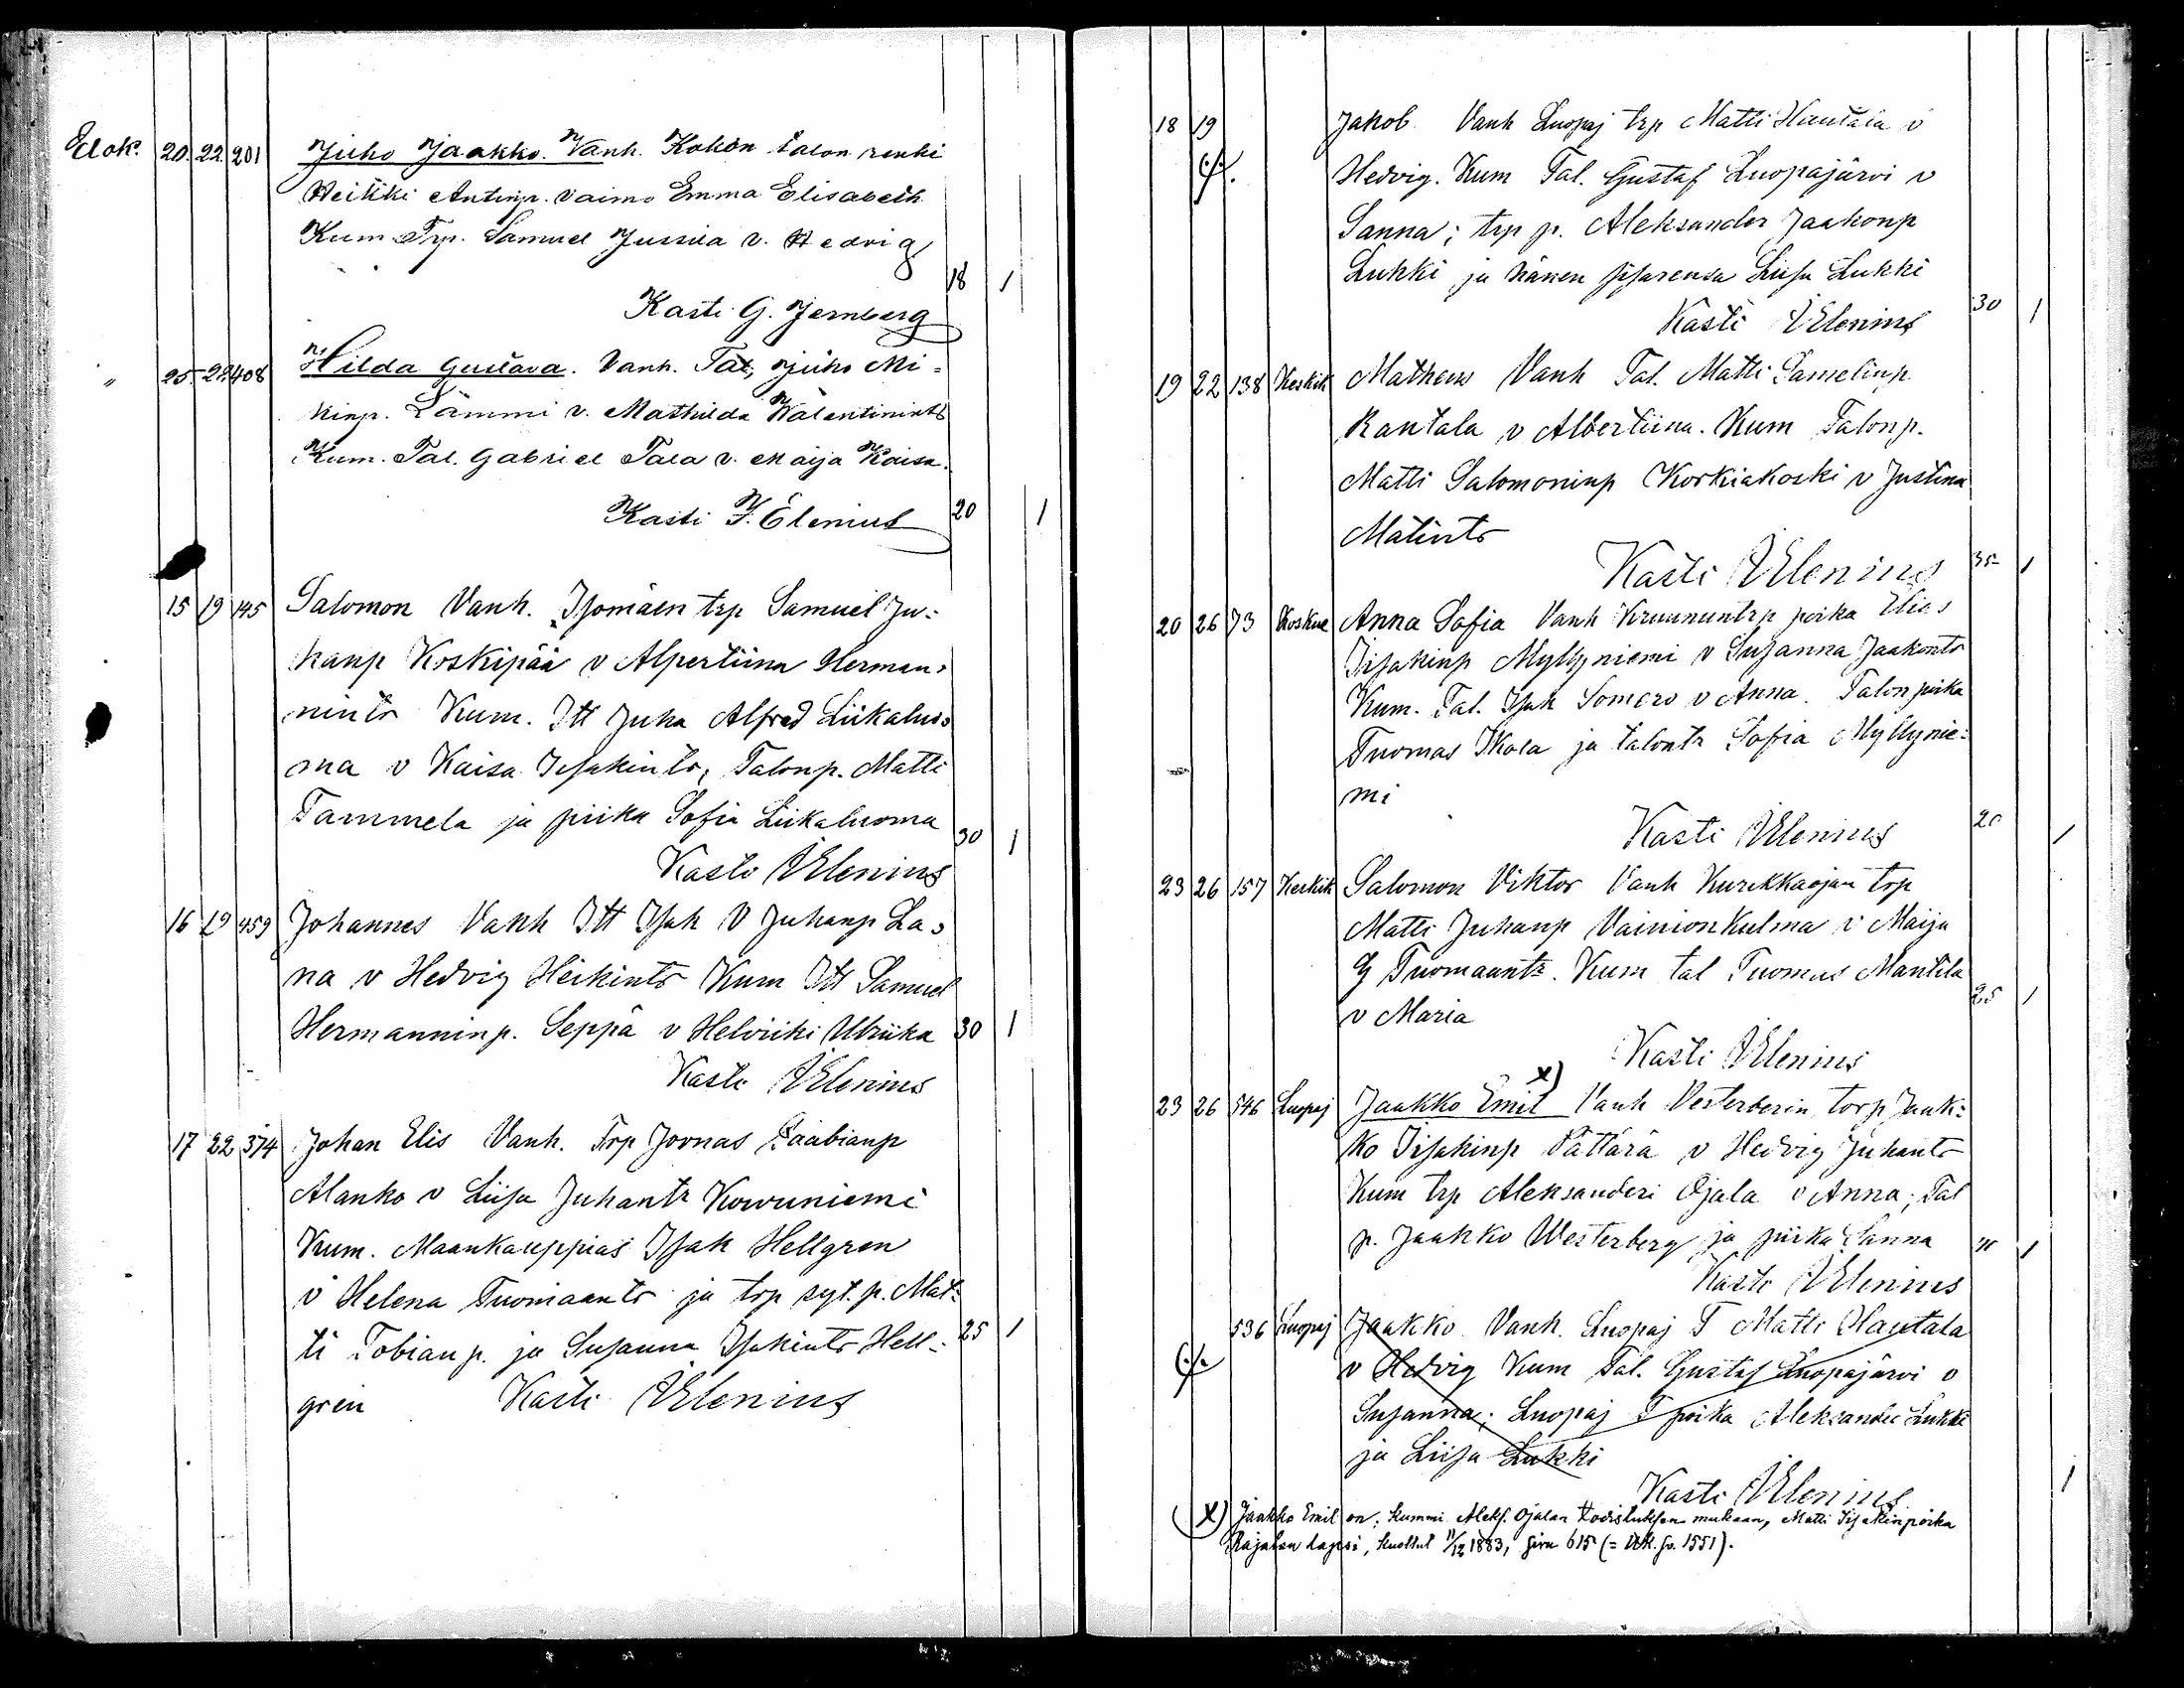 Elok. 20 22 201 Juho Jaakko. Vanh. Kohon talon renki
Heikki Antinp. vaimo Emma Elisabeth
Kum. Trp. Samuel Jussila v. Hedvig
18 1
Kasti G. Jernberg
" 25 22 408 Hilda Gustava. Vanh. Tal, Juho Mi-
kinp. Lammi v. Mathilda Walentinintr
Kum. Tal. Gabriel Tala v. Maija Kaisa.
Kasti J. Elenius 20 1
15 19 145 Salomon Vanh. Isomäen trp Samuel Ju-
hanp Koskipää v Alpertiina Herman-
nintr Kum. Itt Juha Alfred Liikaluo-
ma v Kaisa Iisakintr, Talonp. Matti
Tammela ja piika Sofia Liikaluoma 30 1
Kasti J Elenius
16 19 459 Johannes Vanh Itt Isak V Juhanp La-
na v Hedvig Heikintr Kum Itt Samuel
Hermanninp. Seppä v Helviiki Ulriika 30 1
Kasti J Elenius
17 22 374 Johan Elis Vanh. Trp Joonas Faabianp
Alanko v Liisa Juhantr Kowuniemi
Kum. Maankauppias Isak Hellgren
v Helena Tuomaantr ja trp syt. p. Mat-
ti Tobianp. ja Susanna Isakintr Hell- 25 1
gren Kasti J Elenius
18 19 Jakob Vanh Luopaj trp Matti Hautala v
Hedvig. Kum Tal. Gustaf Luopajärvi v
Sanna; trp p. Aleksander Jaakonp
Lukki ja hänen sisarensa Liisa Lukki
Kasti J Elenius 30 1
19 22 138 Keskik Matheus Vanh Tal. Matti Samelinp
Rantala v Albertiina. Kum Talonp.
Matti Salomoninp Korkiakoski v Justina
Matintr
Kasti J Elenius 35 1
20 26 73 Koskue Anna Sofia Vanh Kruununtrp poika Elias
Iisakinp Myllyniemi v Susanna Jaakontr
Kum. Tal. Isak Somero v Anna. Talon poika
Tuomas Ikola ja talontr Sofia Myllynie-
mi
Kasti J Elenius 20 1
23 26 157 Keskik Salomon Viktor Vanh Kurikkaojan trp
Matti Juhanp Vainionkulma v Maija
G Tuomaantr. Kum tal Tuomas Mantila
v Maria 25 1
Kasti J Elenius
23 26 546 Luopaj Jaakko Emil x) Vanh Vesterberin torp Jaak-
ko Iisakinp Pättärä v Hedvig Juhantr
Kum trp Aleksanderi Ojala v Anna; Tal
p. Jaakko Westerberg ja piika Sanna 1
Kasti J Elenius
536 Luopaj Jaakko Vanh. Luopaj T Matti Hautala
v Hedvig Kum Tal. Gustaf Luopajärvi v
Susanna; Luopaj T poika Aleksander Lukki
ja Liisa Lukki
Kasti J Elenius 1
x) Jaakko Emil on, kummi Aleks. Ojalan todistuksen mukaan, Matti Iisakinpoika
Rajalan lapsi, kuollut 11/12 1883, sivu 615 (= Rk. s. 1551).